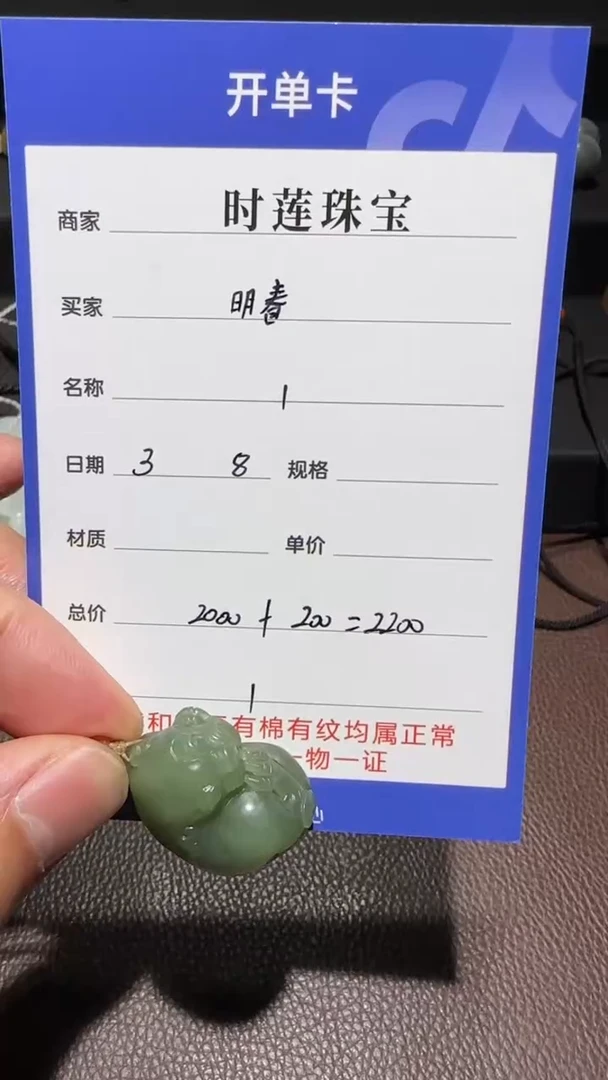 开单卡
商家 时莲珠宝
买家 明春
名称 1
日期 3 8 规格
材质 单价
总价 2000+200=2200
1
和 有棉有纹均属正常
一物一证